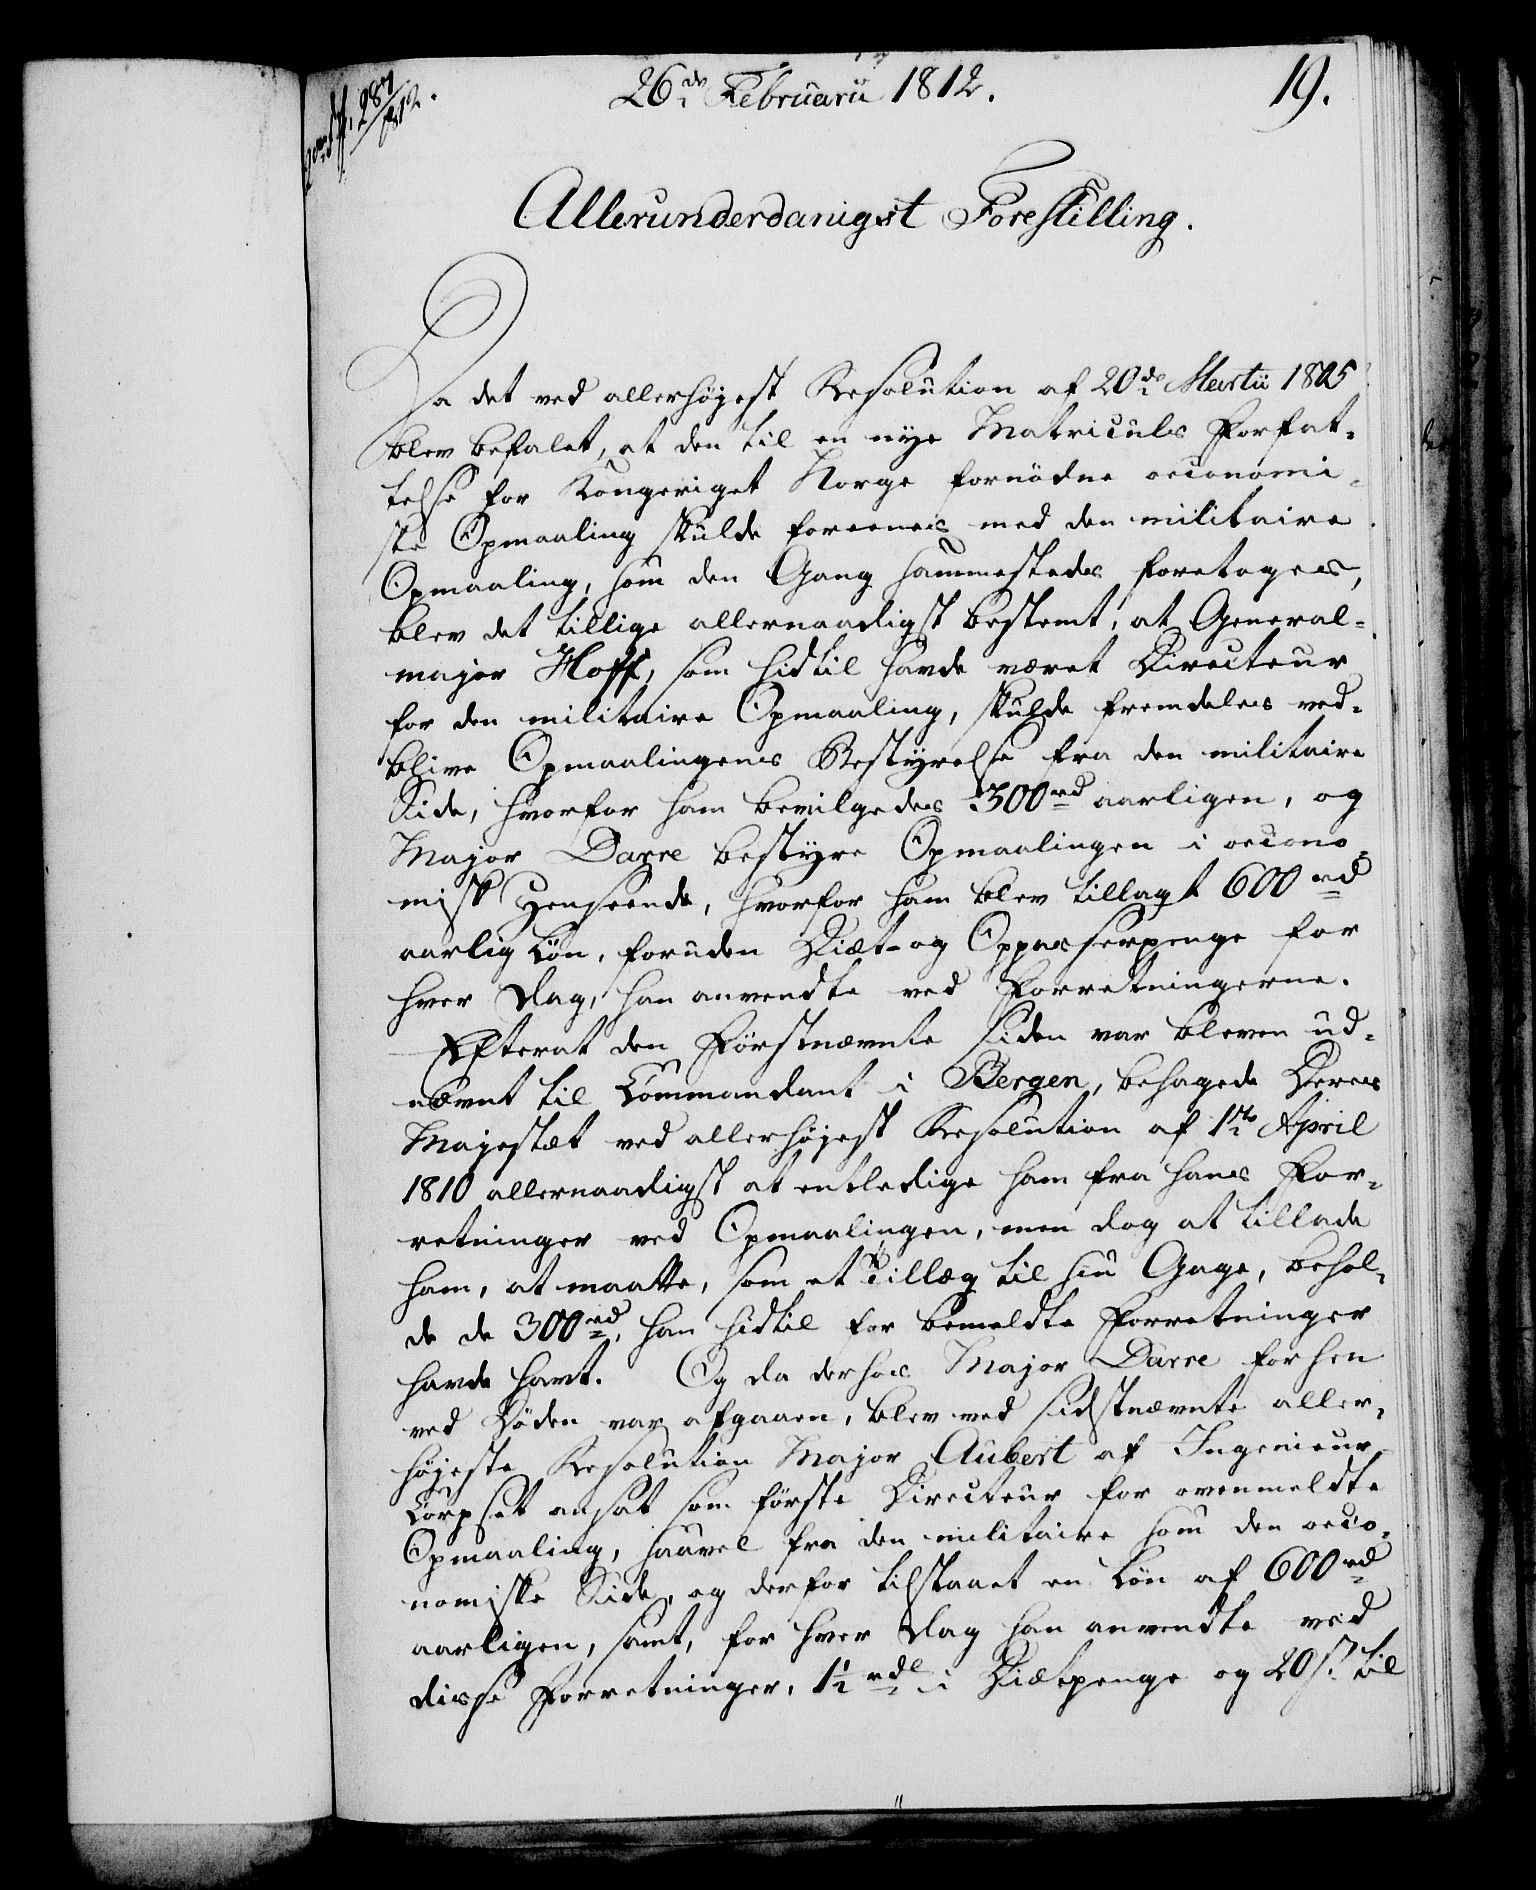 287/1812.
26de Februarii 1812.
19.
Allerunderdanigst Forestilling.
Da det ved allerhøjest Resolution af 20de Martii 1805
blev befalet, at den til en nye Matriculs Forfat-
telse for Kongeriget Norge fornödne oeconomi-
ske Opmaaling skulde foreenes med den militaire
Opmaaling, som den Gang sammestedes foretoges,
blev det tillige allernaadigst bestemt, at General-
major Hoff, som hidtil havde været Directeur
for den militaire Opmaaling, skulde fremdeles ved-
blive Opmaalingens Bestyrelse fra den militaire
Side, hvorfor ham bevilgedes 300rd aarligen, og
Major Darre bestyre Opmaalingen i oecono-
misk Henseende, hvorfor ham blev tillagt 600rd
aarlig Løn, foruden Diæt- og Oppasserpenge for
hver Dag, han anvendte ved Forretningerne.
Efterat den Førstnævnte siden var bleven ud-
nævnt til Commandant i Bergen, behagede Deres
Majestæt ved allerhøjest Resolution af 1ste April
1810 allernaadigst at entledige ham fra hans For-
retninger ved Opmaalingen, men dog at tillade
ham, at maatte, som et Tillæg til sin Gage, behol-
de de 300rd, han hidtil for bemeldte Forretninger
havde havt. Og da derhos Major Darre forhen
ved Døden var afgaaen, blev ved sidstnævnte aller-
højeste Resolution Major Aubert af Ingenieur
Corpset ansat som første Directeur for ovenmeldte
Opmaaling, saavel fra den militaire som den oeco-
nomiske Side, og derfor tilstaaet en Løn af 600rd
aarligen, samt, for hver Dag han anvendte ved
disse Forretninger, 1½ rdl i Diætpenge og 20 s. til